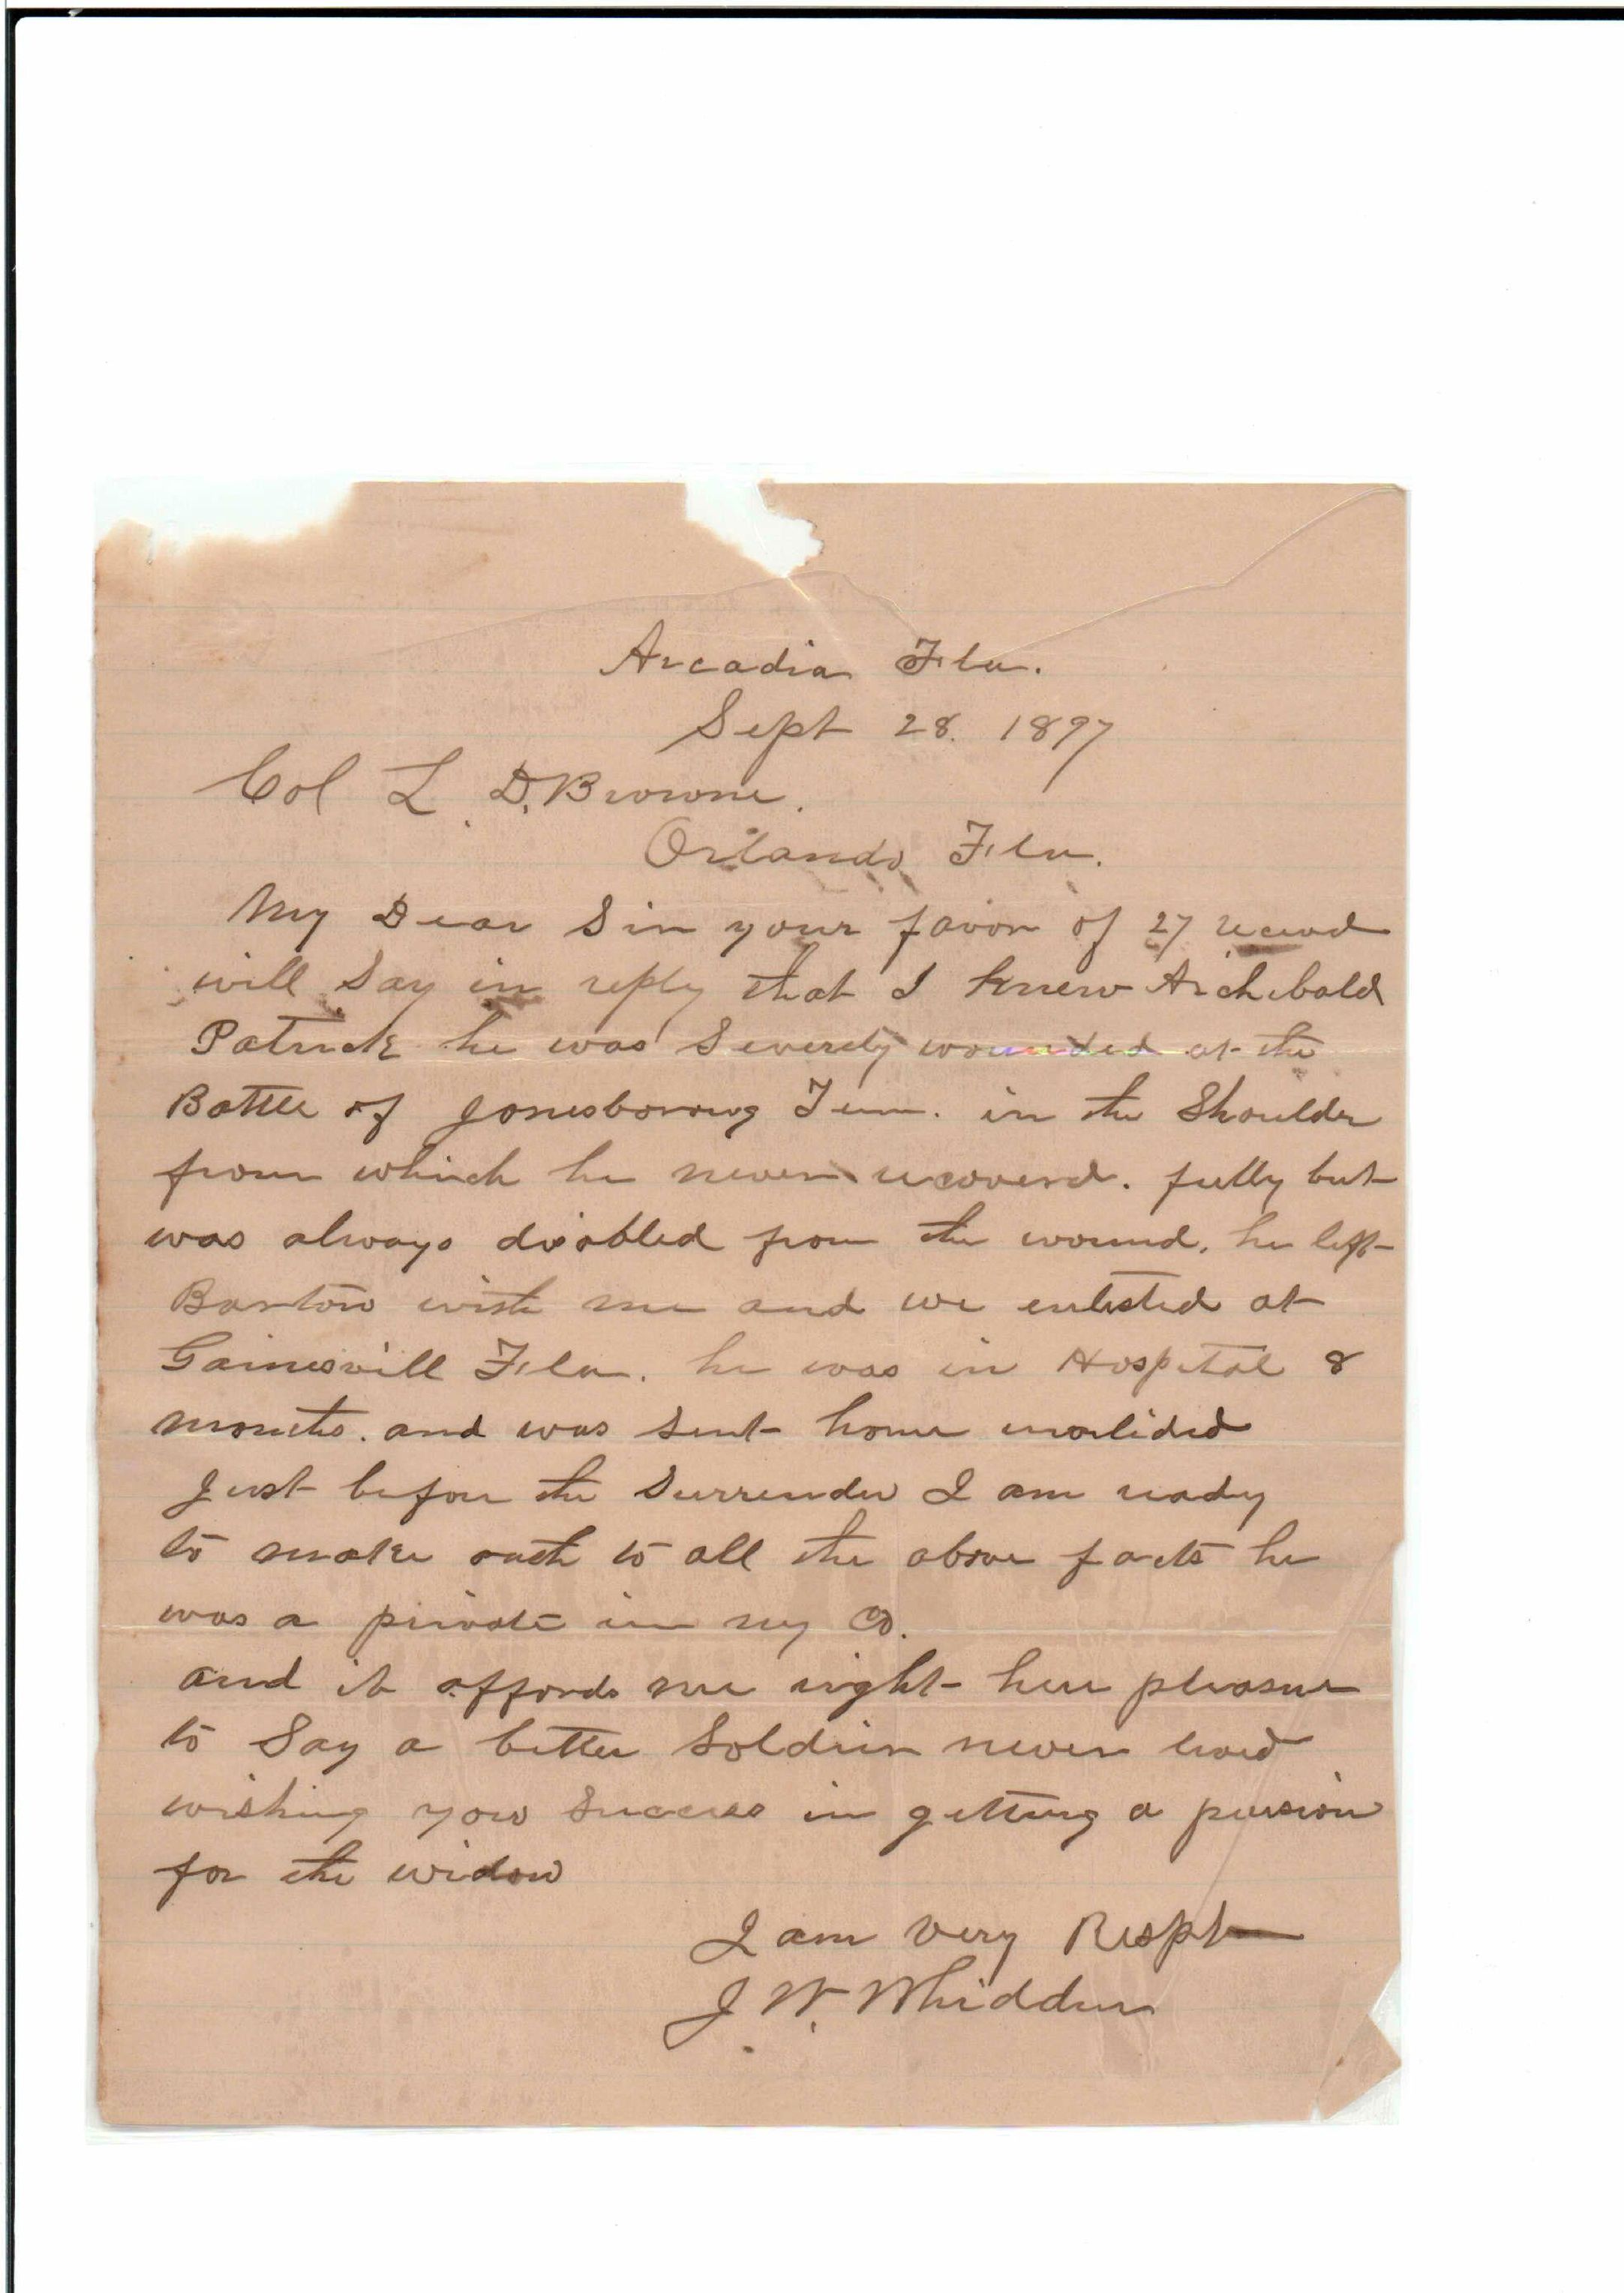 Arcadia Fla.
Sept 28. 1897
Col L. D. Browne.
Orlando Fla.
My Dear Sir your favor of 27 recevd
will Say in reply that I knew Archibald
Patrick he was Severely wounded at the
Battle of Jonesboroug Tenn. in the Shoulder
from which he never recoverd. fully but
was always disabled from the wound. he left
Bartow with me and we enlisted at
Gainesvill Fla. he was in Hospital 8
months. and was sent home invalided
Just before the Surrender I am ready
to make oath to all the above facts he
was a private in my Co.
and it affords me right here pleasure
to Say a better Soldier never lived
wishing you Success in getting a pension
for the widow
I am very Respt
J. W. Whidden